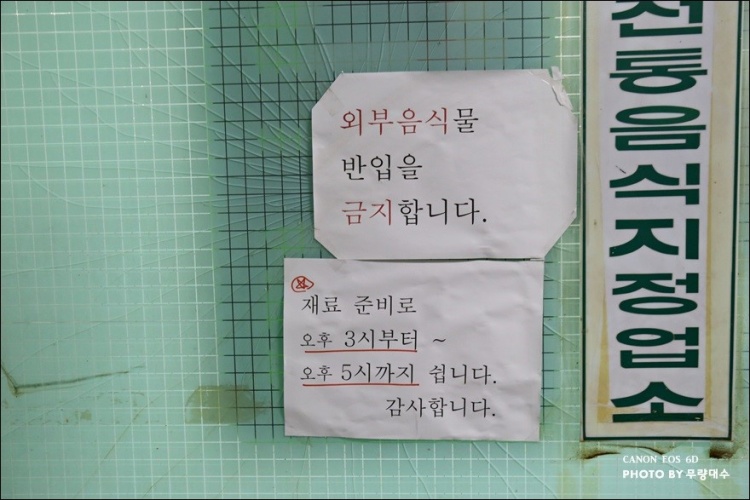 외부음식물
반입을
금지합니다.
재료 준비로
오후 3시부터 ~
오후 5시까지 쉽니다.
감사합니다.
전통음식지정업소
CANON EOS 6D
PHOTO BY 무량대수